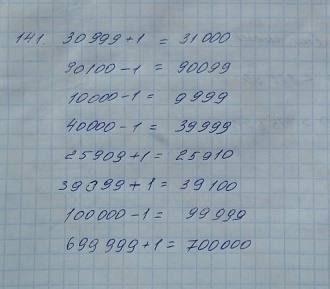 141. 30999+1 = 31000
90100-1 = 90099
10000-1 = 9999
40000-1 = 39999
25909+1 = 25910
39099+1 = 39100
100000-1 = 99999
699999+1 = 700000